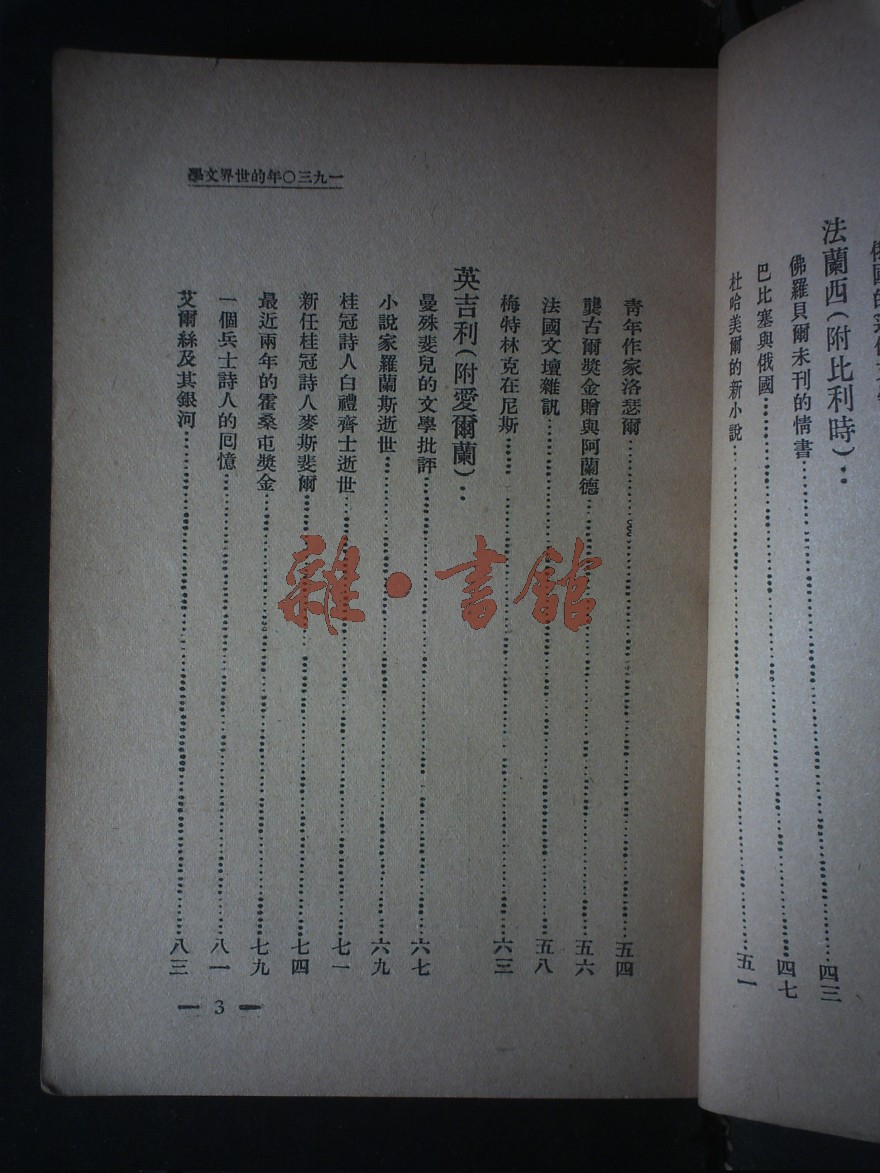 法蘭西(附比利時)‥
佛羅貝爾未刊的情書……四三
巴比塞與俄國……四七
杜哈美爾的新小說……五一
一九三〇年的世界文學
青年作家洛瑟爾……五四
龔古爾獎金贈與阿蘭德……五六
法國文壇雜訊……五八
梅特林克在尼斯……六三
英吉利(附愛爾蘭)‥
曼殊斐兒的文學批評……六七
小說家羅蘭斯逝世……六九
桂冠詩人白禮齊士逝世……七一
新任桂冠詩人麥斯斐爾……七四
最近兩年的霍桑屯獎金……七九
一個兵士詩人的回憶……八一
艾爾絲及其銀河……八三
— 3 —
雜·書館